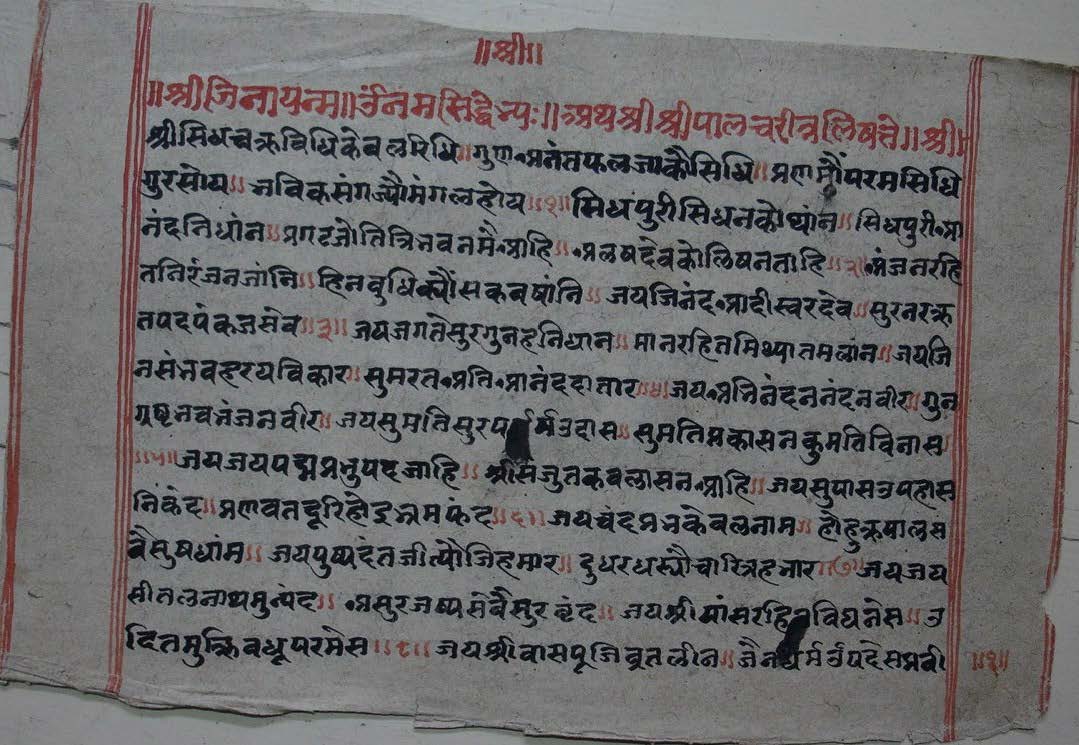 ॥श्री॥
॥श्रीजिनायन्म॥ ॐनमसिद्धेभ्यः॥ अथश्रीश्रीपालचरीत्रलिषते॥श्री॥
श्रीसिधचक्रविधिकेवलरिधि॥ गुणअनंतफलजाकौसिधि॥ प्रणमौंपरमसिधि
गुरसोय॥ भविकसंगज्यौमंगलहोय॥१॥ सिधपुरीसिधनकोथांन॥ सिधपुरीआ
नंदनिधांन॥ प्रगटजोतित्रिभवनमैआहि॥ अलषदेवकोलिषनताहि॥२॥ अंजनरहि
तनिरंजनजांनि॥ हिनबुधिक्यौंसकबषांनि॥ जयजिनंदआदीस्वरदेव॥ सुरनरक्र
तपदपंकजसेव॥३॥ जयजगतेसुरगुनहनिधान॥ मानरहितमिथ्यातमलांन॥ जयजि
नसंभवहरयविकार॥ सुमरतअतिआनंददातार॥४॥ जयअभिनंदननंदनवीर॥ गुन
भवभंजनवीर॥ जयसुमतिसुरप उदास॥ सुमतिप्रकासनकुमतिविनास
॥५॥ जयजयपद्मप्रभुपदजाहि॥ श्रीसंजुतकवलासनआहि॥ जयसुपासउपहास
निकंद॥ प्रणवतदूरिहोइभ्रमफंद॥६॥ जयचंदप्रभकेवलनाम॥ होहुक्रपालस
वैसुषधांम॥ जयपुष्पदंतजीत्यौजिहमार॥ दुधरधर्‌यौचारित्रहभार॥७॥ जयजय
सीतलनाथमुन्यंद॥ असुरजष्यसेवैसुरवृंद॥ जयश्रीयांसरहितविघनेस॥ उ
दितमुक्तिवधूपरमेस॥८॥ जयश्रीवासपूजिव्रतलीन॥ जैनधर्मउपदेसप्रवी ॥१॥